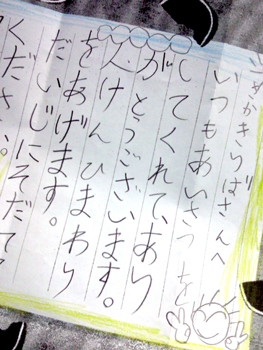 さんへ
いつもあいさつを
してくれて、あり
がとうございます。
人けんひまわり
をあげます。
だいじにそだて
ください。